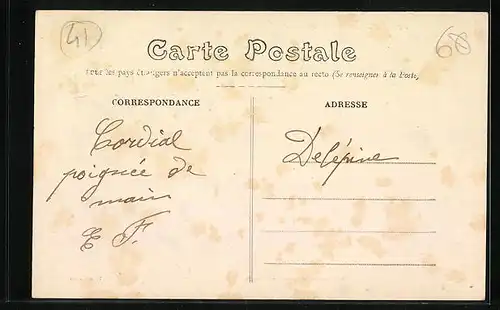 41
60
Carte Postale
Tous les pays étrangers n'acceptent pas la correspondance au recto (Se renseigner à la Poste)
CORRESPONDANCE
ADRESSE
Cordial
poignée de
main
E F.
Delépine